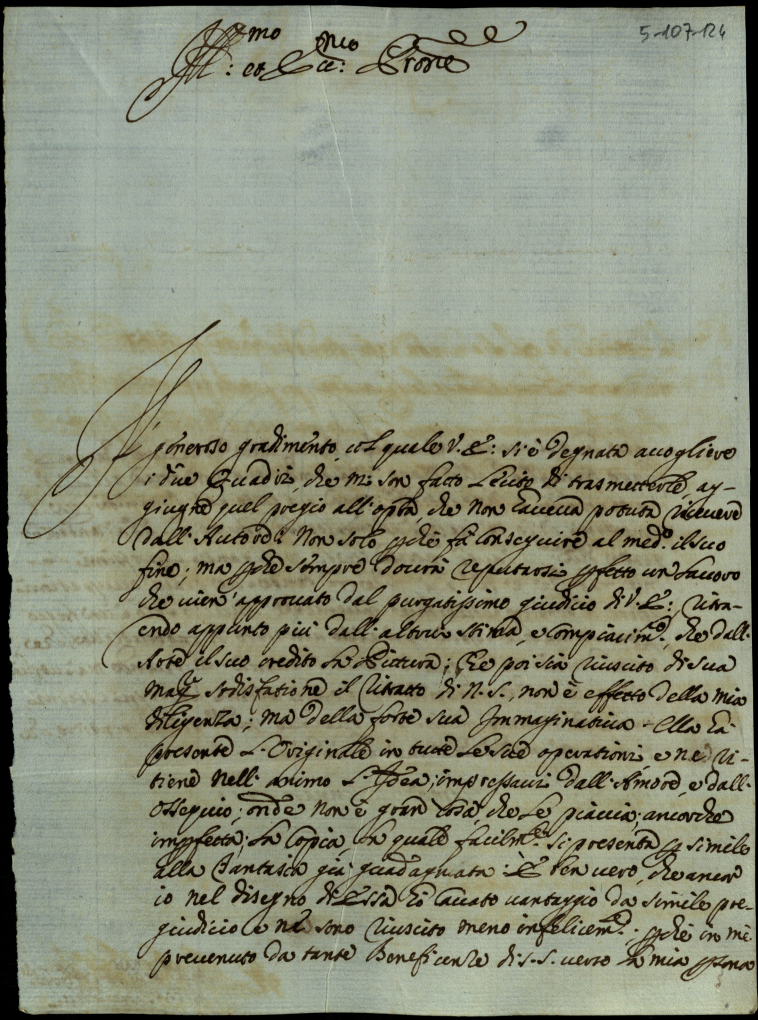 5-107-124
Ill:mo et Ecc:mo Prone
Il generoso gradimento, col quale V.E: si è degnata accogliere
i due Quadri, che mi son fatto lecito di trasmetterle, ag-
giugne quel pregio all'opra, che non haveva potuta ricevere
dall'Autore: Non solo pche fà conseguire al med.o il suo
fine; ma pche sempre dovrà reputarsi pfetto un lavoro
che vien' approvato dal purgatissimo giudicio di V.E: Ritra-
endo appunto più dall'altrui stima, e compiacim.o, che dall'
Arte il suo credito la Pittura; Che poi sia riuscito di sua
mag.r sodisfatione il Ritratto di N.S., non è effetto della mia
diligenza; ma della forte sua Immaginativa. Ella hà
presente l'Originale in tutte le sue operationi, e ne ri-
tiene nell'animo l'Idea, impressavi dall'Amore, e dall'
Ossequio; onde non è gran cosa, che le piaccia, ancorche
impfetta, la Copia, la quale facilm.te si presenta p simile
alla Fantasia già guadagnata: È ben vero, che ancor
io nel disegno di Essa hò cavato vantaggio da simile pre-
giudicio e ne sono riuscito meno infelicem.te pche in me
prevenuto da tante Beneficenze di S.S. verso la mia psona